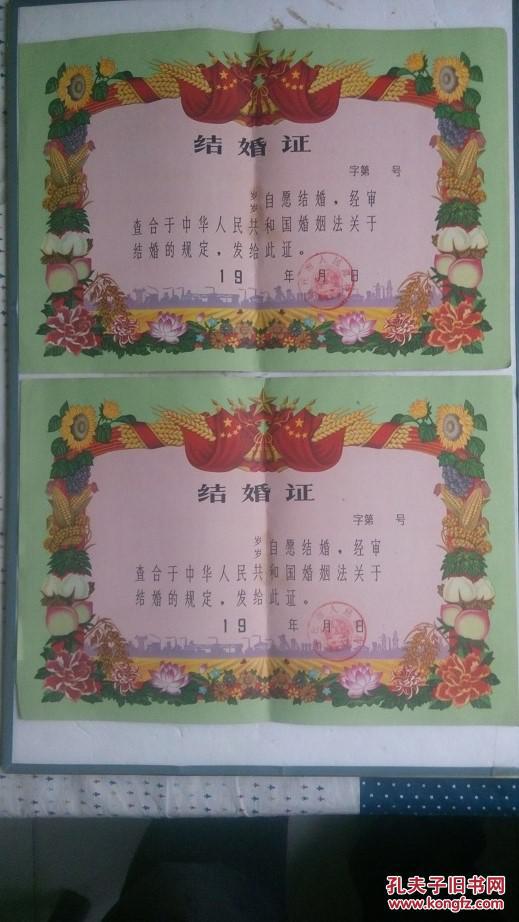 结婚证
字第 号
岁
岁 自愿结婚，经审
查合于中华人民共和国婚姻法关于
结婚的规定，发给此证。
19 年 月 日
结婚证
字第 号
岁
岁 自愿结婚，经审
查合于中华人民共和国婚姻法关于
结婚的规定，发给此证。
19 年 月 日
孔夫子旧书网
www.kongfz.com